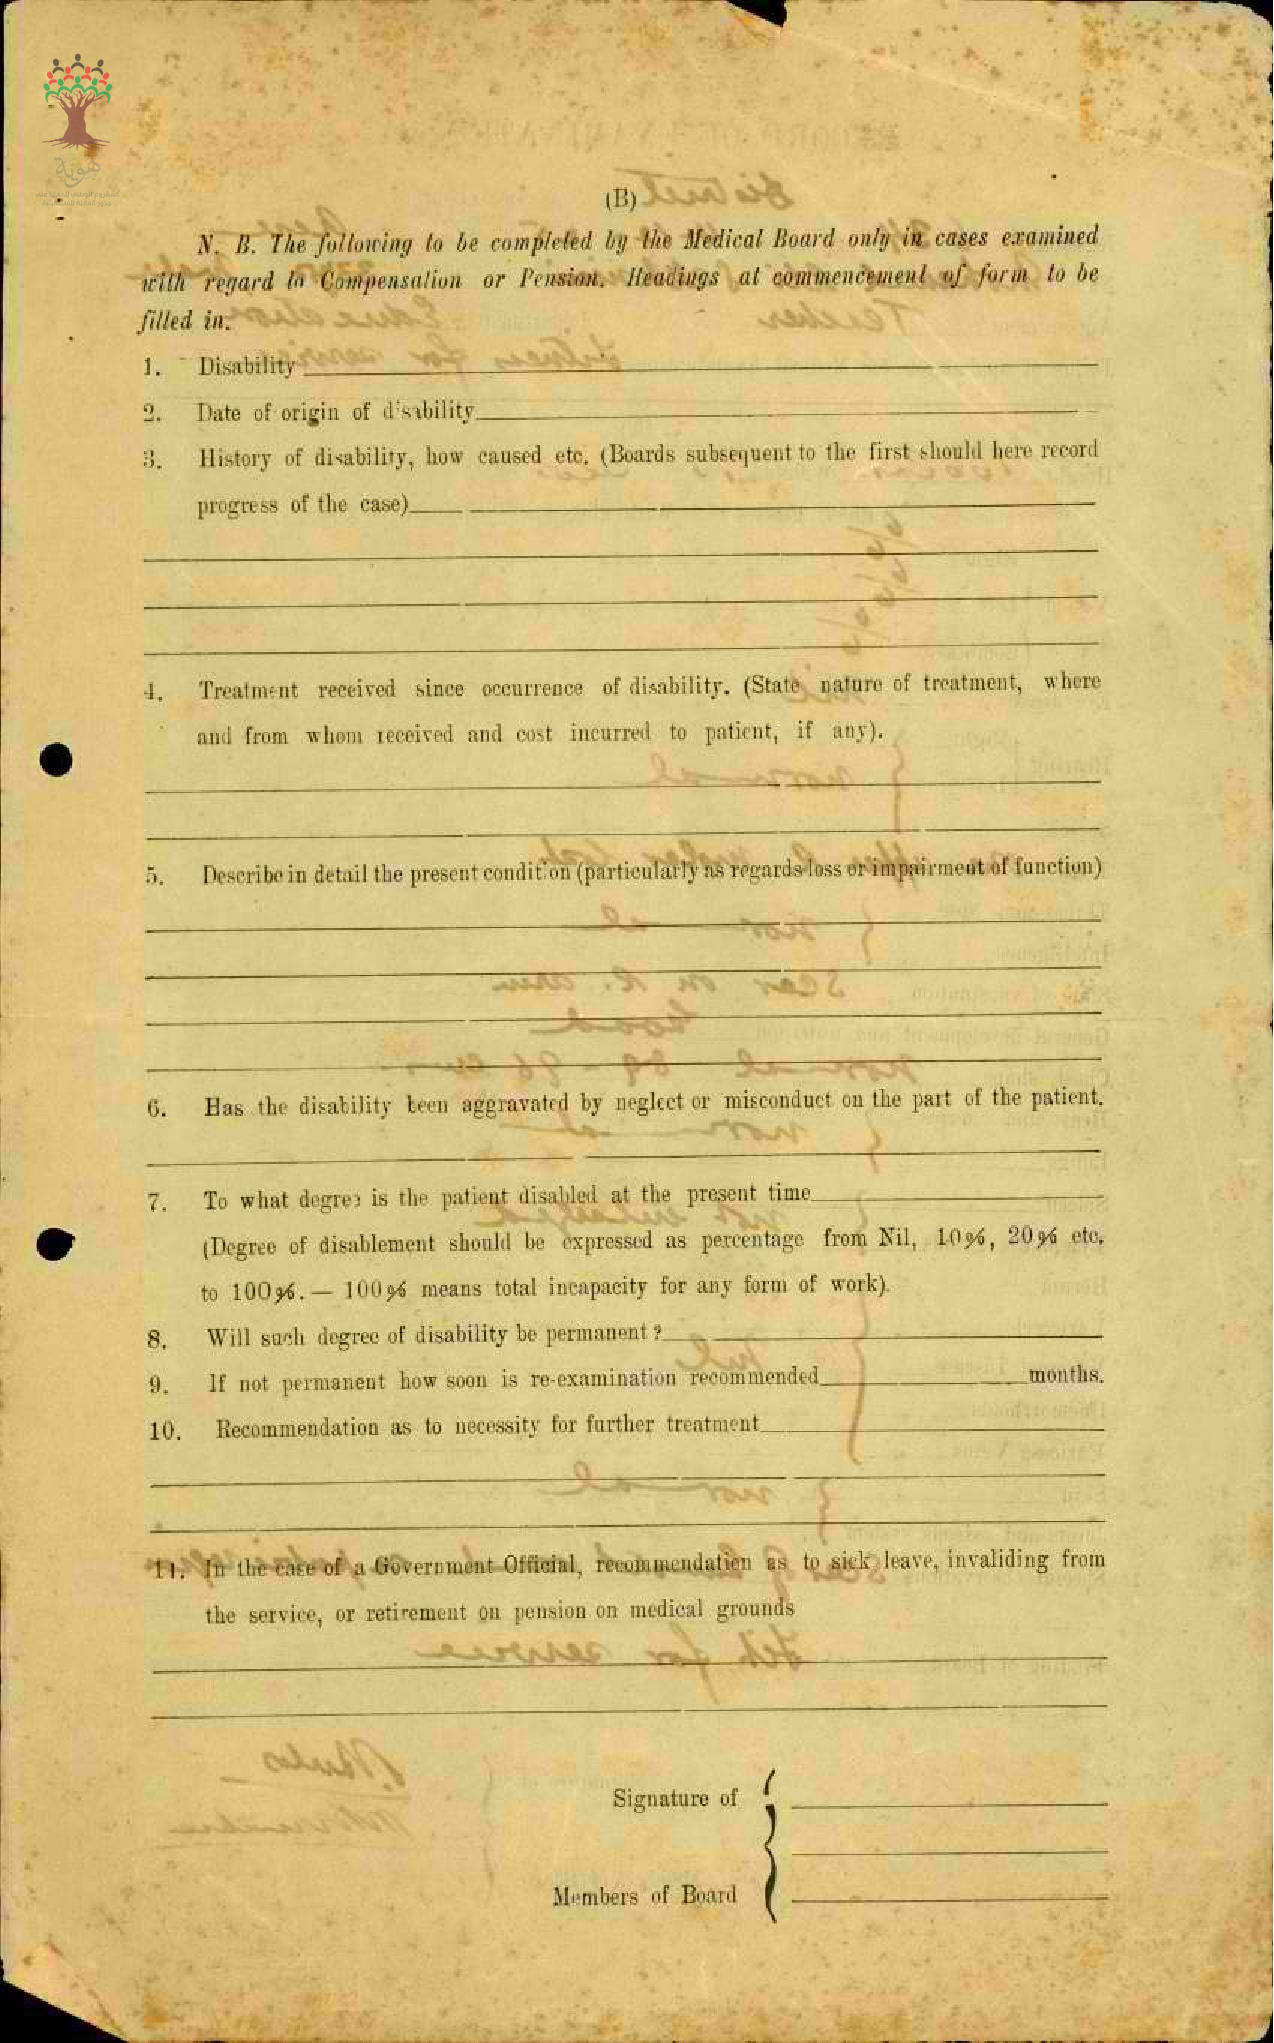 هوية
(B)
N. B. The following to be completed by the Medical Board only in cases examined
with regard to Compensation or Pension. Headings at commencement of form to be
filled in.
1. Disability
2. Date of origin of disability
3. History of disability, how caused etc. (Boards subsequent to the first should here record
progress of the case)
4. Treatment received since occurrence of disability. (State nature of treatment, where
and from whom received and cost incurred to patient, if any).
5. Describe in detail the present condition (particularly as regards loss or impairment of function)
6. Has the disability been aggravated by neglect or misconduct on the part of the patient.
7. To what degree is the patient disabled at the present time
(Degree of disablement should be expressed as percentage from Nil, 10%, 20% etc.
to 100%. — 100% means total incapacity for any form of work).
8. Will such degree of disability be permanent ?
9. If not permanent how soon is re-examination recommended months.
10. Recommendation as to necessity for further treatment
11. In the case of a Government Official, recommendation as to sick leave, invaliding from
the service, or retirement on pension on medical grounds
Signature of
Members of Board